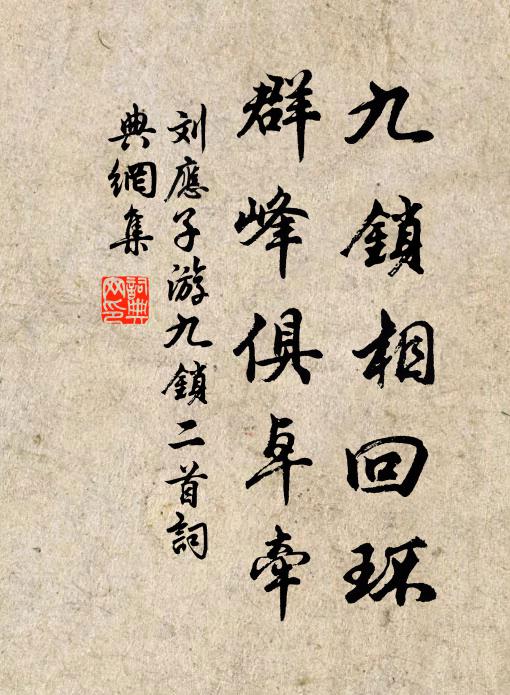 九鎖相回环
群峰俱卓牽
刘應子游九鎖二首詞
典網集
詞典网印